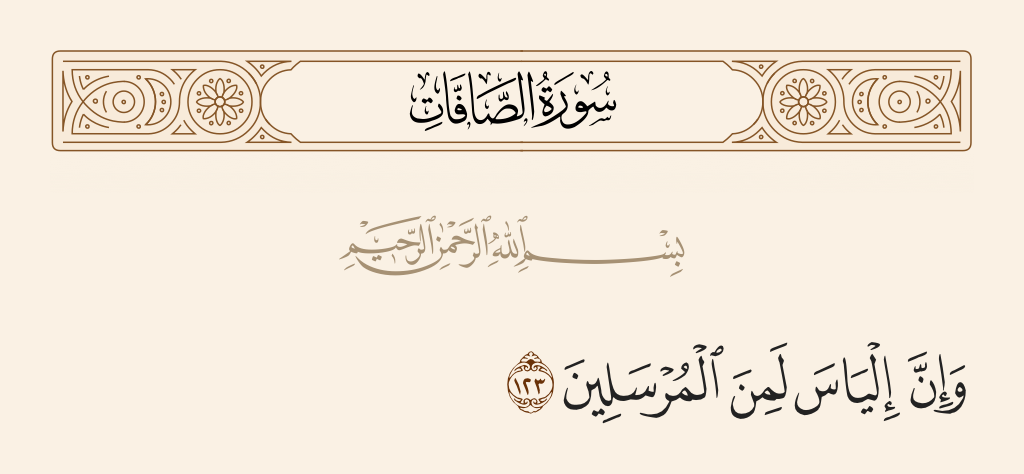 سُورَةُ الصَّافَّاتِ
بِسْمِ ٱللَّهِ ٱلرَّحْمَٰنِ ٱلرَّحِيمِ
وَإِنَّ إِلْيَاسَ لَمِنَ ٱلْمُرْسَلِينَ ١٢٣